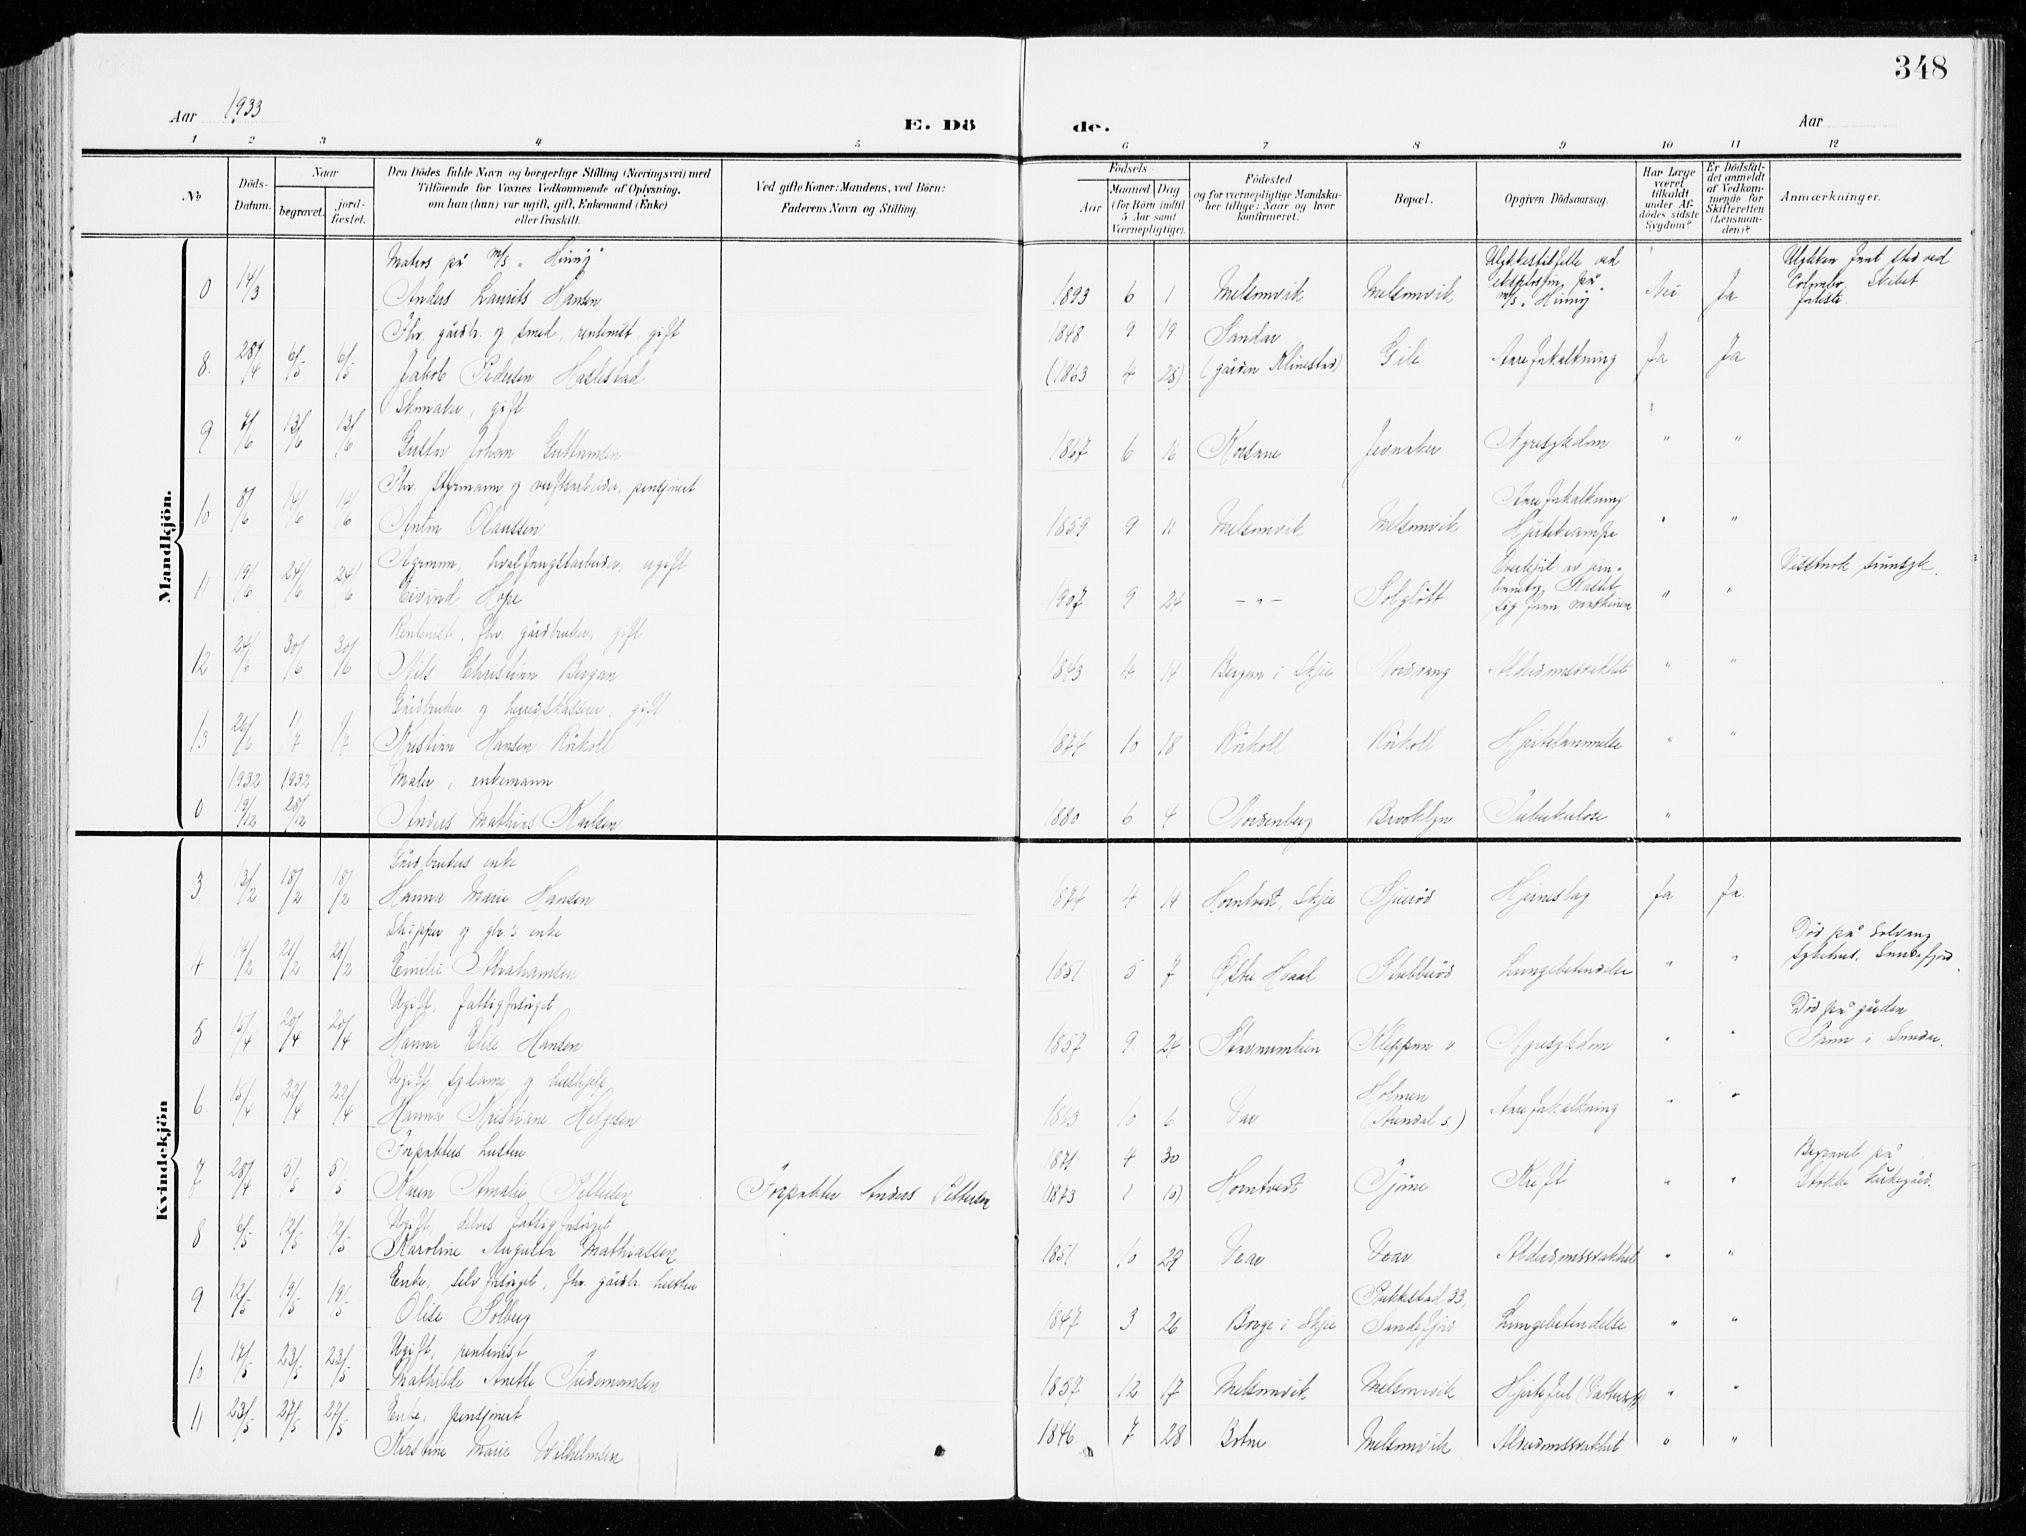 348
Aar 1933
E. Dö de.
Aar
1 2 3 4 5 6 7 8 9 10 11 12
No
Döds-Datum.
Naar
begravet.
jord-fæstet.
Den Dödes fulde Navn og borgerlige Stilling (Næringsvei) med
Tilföiende for Voxnes Vedkommende af Oplysning,
om hun (hun) var ugift, gift, Enkemand (Enke)
eller fraskilt.
Ved gifte Koner: Mandens, ved Börn:
Faderens Navn og Stilling.
Födsels-
Aar
Maaned Dag
(for Börn indtil
5 Aar samt
Værnepligtige).
Födested
og for værnepligtige Mandska-
ber tillige: Naar og hvor
konfirmeret.
Bopæl.
Opgiven Dödsaarsag.
Har Læge
været
tilkaldt
under Af-
dödes sidste
Sygdom?
Er Dödsfal-
det anmeldt
af Vedkom-
mende for
Skifteretten
(Lensman-
den)?
Anmærkninger.
Mandkjön.
Matros på m/s "Hinnöy"
0 14/3 Anders Laurits Hansen 1893 6 1 Melsomvik Melsomvik Ulykkestilfelle ved eksplosjon på m/s "Hinnöy" Nei Ja Ulykken fant sted ved Colombo. Skibet forliste
Fhv. gårdbr. og smed, rentenist, gift 1848 9 19 Sandar
8. 28/4 6/5 6/5 Jakob Pedersen Haslestad (1863 4 25) (gården Klinestad) Gile Åreforkalkning Ja Ja
Skomaker, gift
9 7/6 13/6 13/6 Gustav Johan Guttormsen 1867 6 16 Korsane Jernaker Nyresykdom " "
Fhv. styrmann og verftsarbeider, pensjonert
10 8/6 14/6 14/6 Anton Olaussen 1859 9 11 Melsomvik Melsomvik Åreforkalkning Hjertekrampe " "
Agronom, hvalfangstarbeider, ugift
11 19/6 24/6 24/6 Eivind Hope 1907 9 24 — " — Solgløtt Overkjørt av jernbanetog. Kastet sig foran maskinen " " Visstnok sinnsyk.
Rentenist, fhv. gårdbruker, gift
12 24/6 30/6 30/6 Nils Christian Bergan 1843 4 14 Bergan i Skjee Nordvang Alderdomssvakhet " "
Gårdbruker og herredskasserer, gift
13 26/6 1/7 1/7 Kristian Hansen Rökoll 1874 10 18 Rökoll Rökoll Hjertelammelse " "
1932 1932 Maler, enkemann
0 19/12 28/12 Anders Mathias Karlsen 1880 6 4 Nordenberg Brooklyn Tuberkulose "
Kvindekjön
Gårdbrukers enke
3 13/2 18/2 18/2 Hanna Marie Hansen 1874 4 14 Horntvedt, Skjee Gjueröd Hjerneslag Ja Ja.
Skipper og gbr.s enke
4 14/2 21/2 21/2 Emilie Abrahamsen 1851 5 7 Østre Hvaal Stubberöd Lungebetendelse " " Död på Solvang Sykehus. Sandefjord.
Ugift, fattigforsörget
5 15/4 20/4 20/4 Hanna Elise Hansen 1857 9 24 Stavnumlien Kleppan v. Nyresykdom " " Död på gården Frum i Sandar.
Ugift, sydame og hushjelp
6. 15/4 22/4 22/4 Hanna Kristiane Helgesen 1863 10 6 Vear Holmen (Arendal s.) Åreforkalkning " "
Forpakters hustru 1871 4 30
7 28/4 5/5 5/5 Karen Amalie Pettersen Forpakter Anders Pettersen (1873 1 10) Horntvedt Tjöme Kreft " " Begravet på Stokke kirkegård.
Ugift, delvis fattigforsörget
8 6/5 12/5 12/5 Karoline Augusta Mathiassen 1851 10 29 Vear Vear Alderdomssvakhet " "
Enke, selvforsörget, fhv. gårdbr. hustru
9 12/5 19/5 19/5 Olise Solberg 1847 3 26 Borge i Skjee Pukkestad 33, Sandefjord Lungebetendelse " "
Ugift, rentenist
10 17/5 23/5 23/5 Mathilde Anette Tidemansen 1857 12 17 Melsomvik Melsomvik Hjertefeil " "
Enke, pensjonert
11 23/5 27/5 27/5 Kirstine Marie Wilhelmsen 1846 7 28 Botne Melsomvik Alderdomssvakhet " "